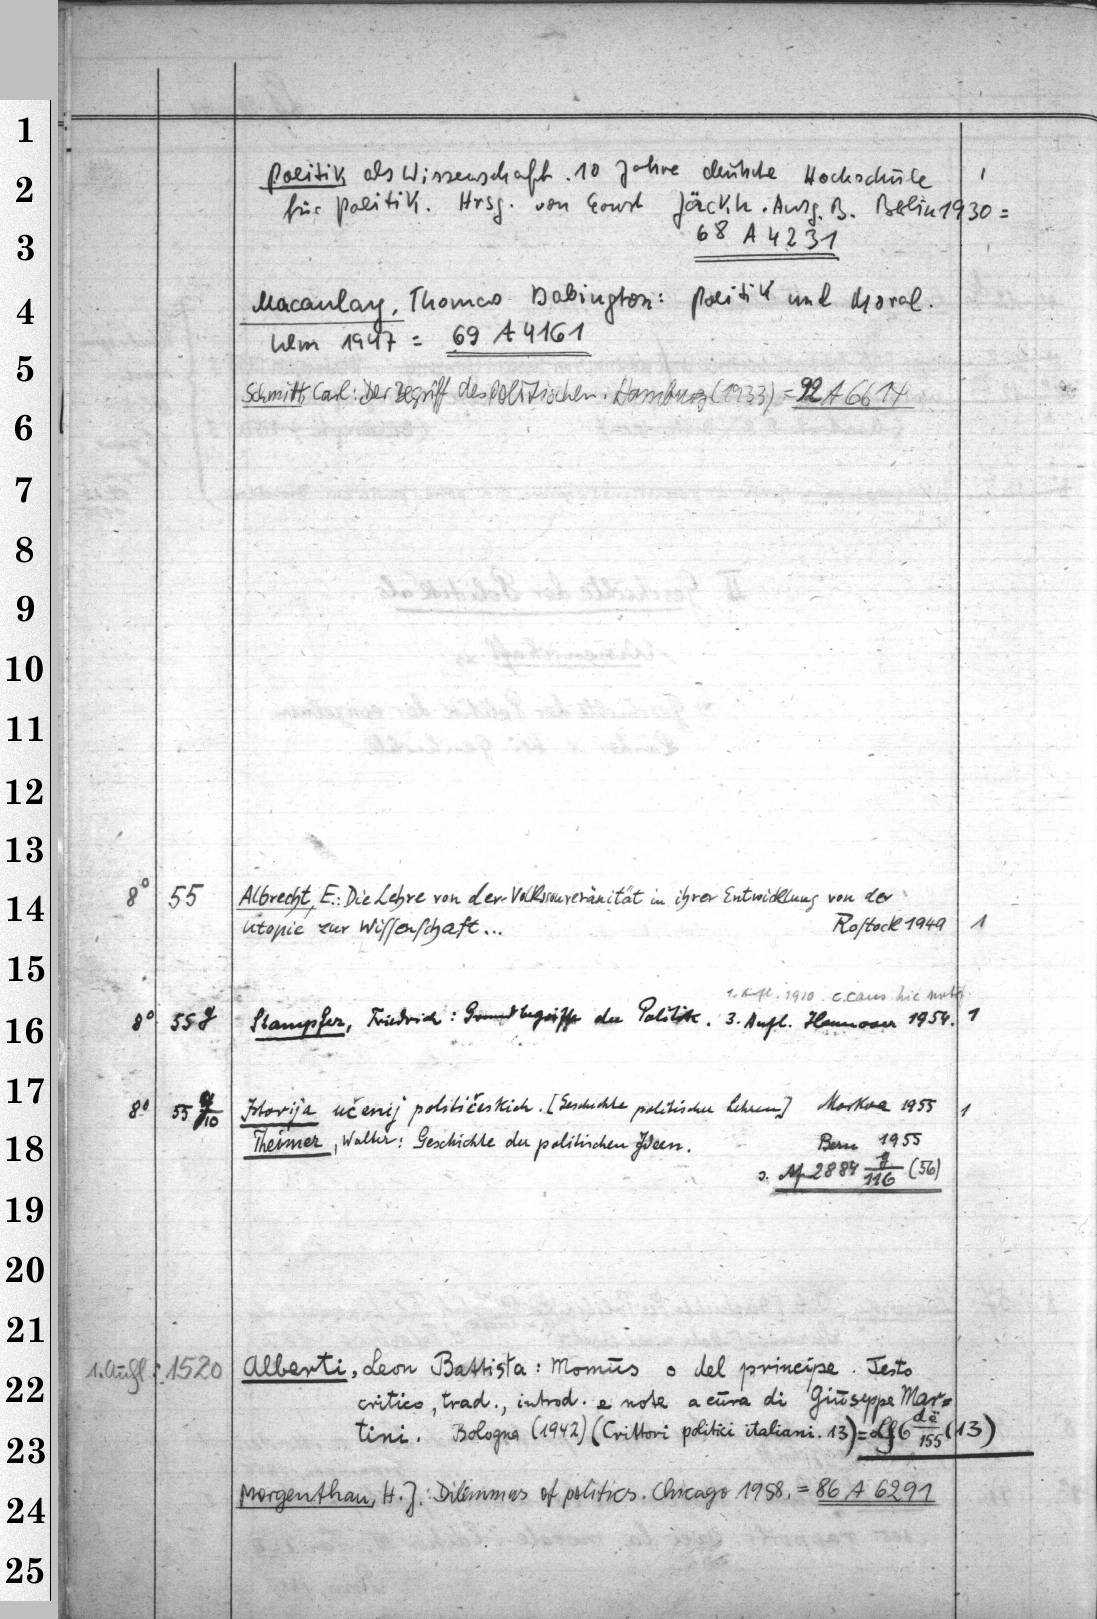 Politik als Wissenschaft. 10 Jahre deutsche Hochschule 1
für Politik. Hrsg. von Ernst Jäckh. Ausg. B. Berlin 1930 =
68 A 4231
Macaulay, Thomas Babington: Politik und Moral.
Ulm 1947 = 69 A 4161
Schmitt, Carl: Der Begriff des Politischen. Hamburg (1933) = 92 A 6614
8° 55 Albrecht, E.: Die Lehre von der Volkssouveränität in ihrer Entwicklung von der
Utopie zur Wissenschaft... Rostock 1949 1
1. Aufl. 1910 hic
8° 55 g Stampfer, Friedrich: Grundbegriffe der Politik. 3. Aufl. Hannover 1954. 1
8° 55 g/10 Istorija učenij političeskich. [Geschichte politischer Lehren] Moskva 1955 1
Theimer, Walter: Geschichte der politischen Ideen. Bern 1955
s. 2884 g/116 (56)
1. Aufl: 1520 Alberti, Leon Battista: Momus o del principe. Testo
critico, trad., introd. e note a cura di Giuseppe Mar=
tini. Bologna (1942) (Crittori politici italiani. 13) = 6 dë/155 (13)
Morgenthau, H. J.: Dilemmas of politics. Chicago 1958. = 86 A 6291
1
2
3
4
5
6
7
8
9
10
11
12
13
14
15
16
17
18
19
20
21
22
23
24
25